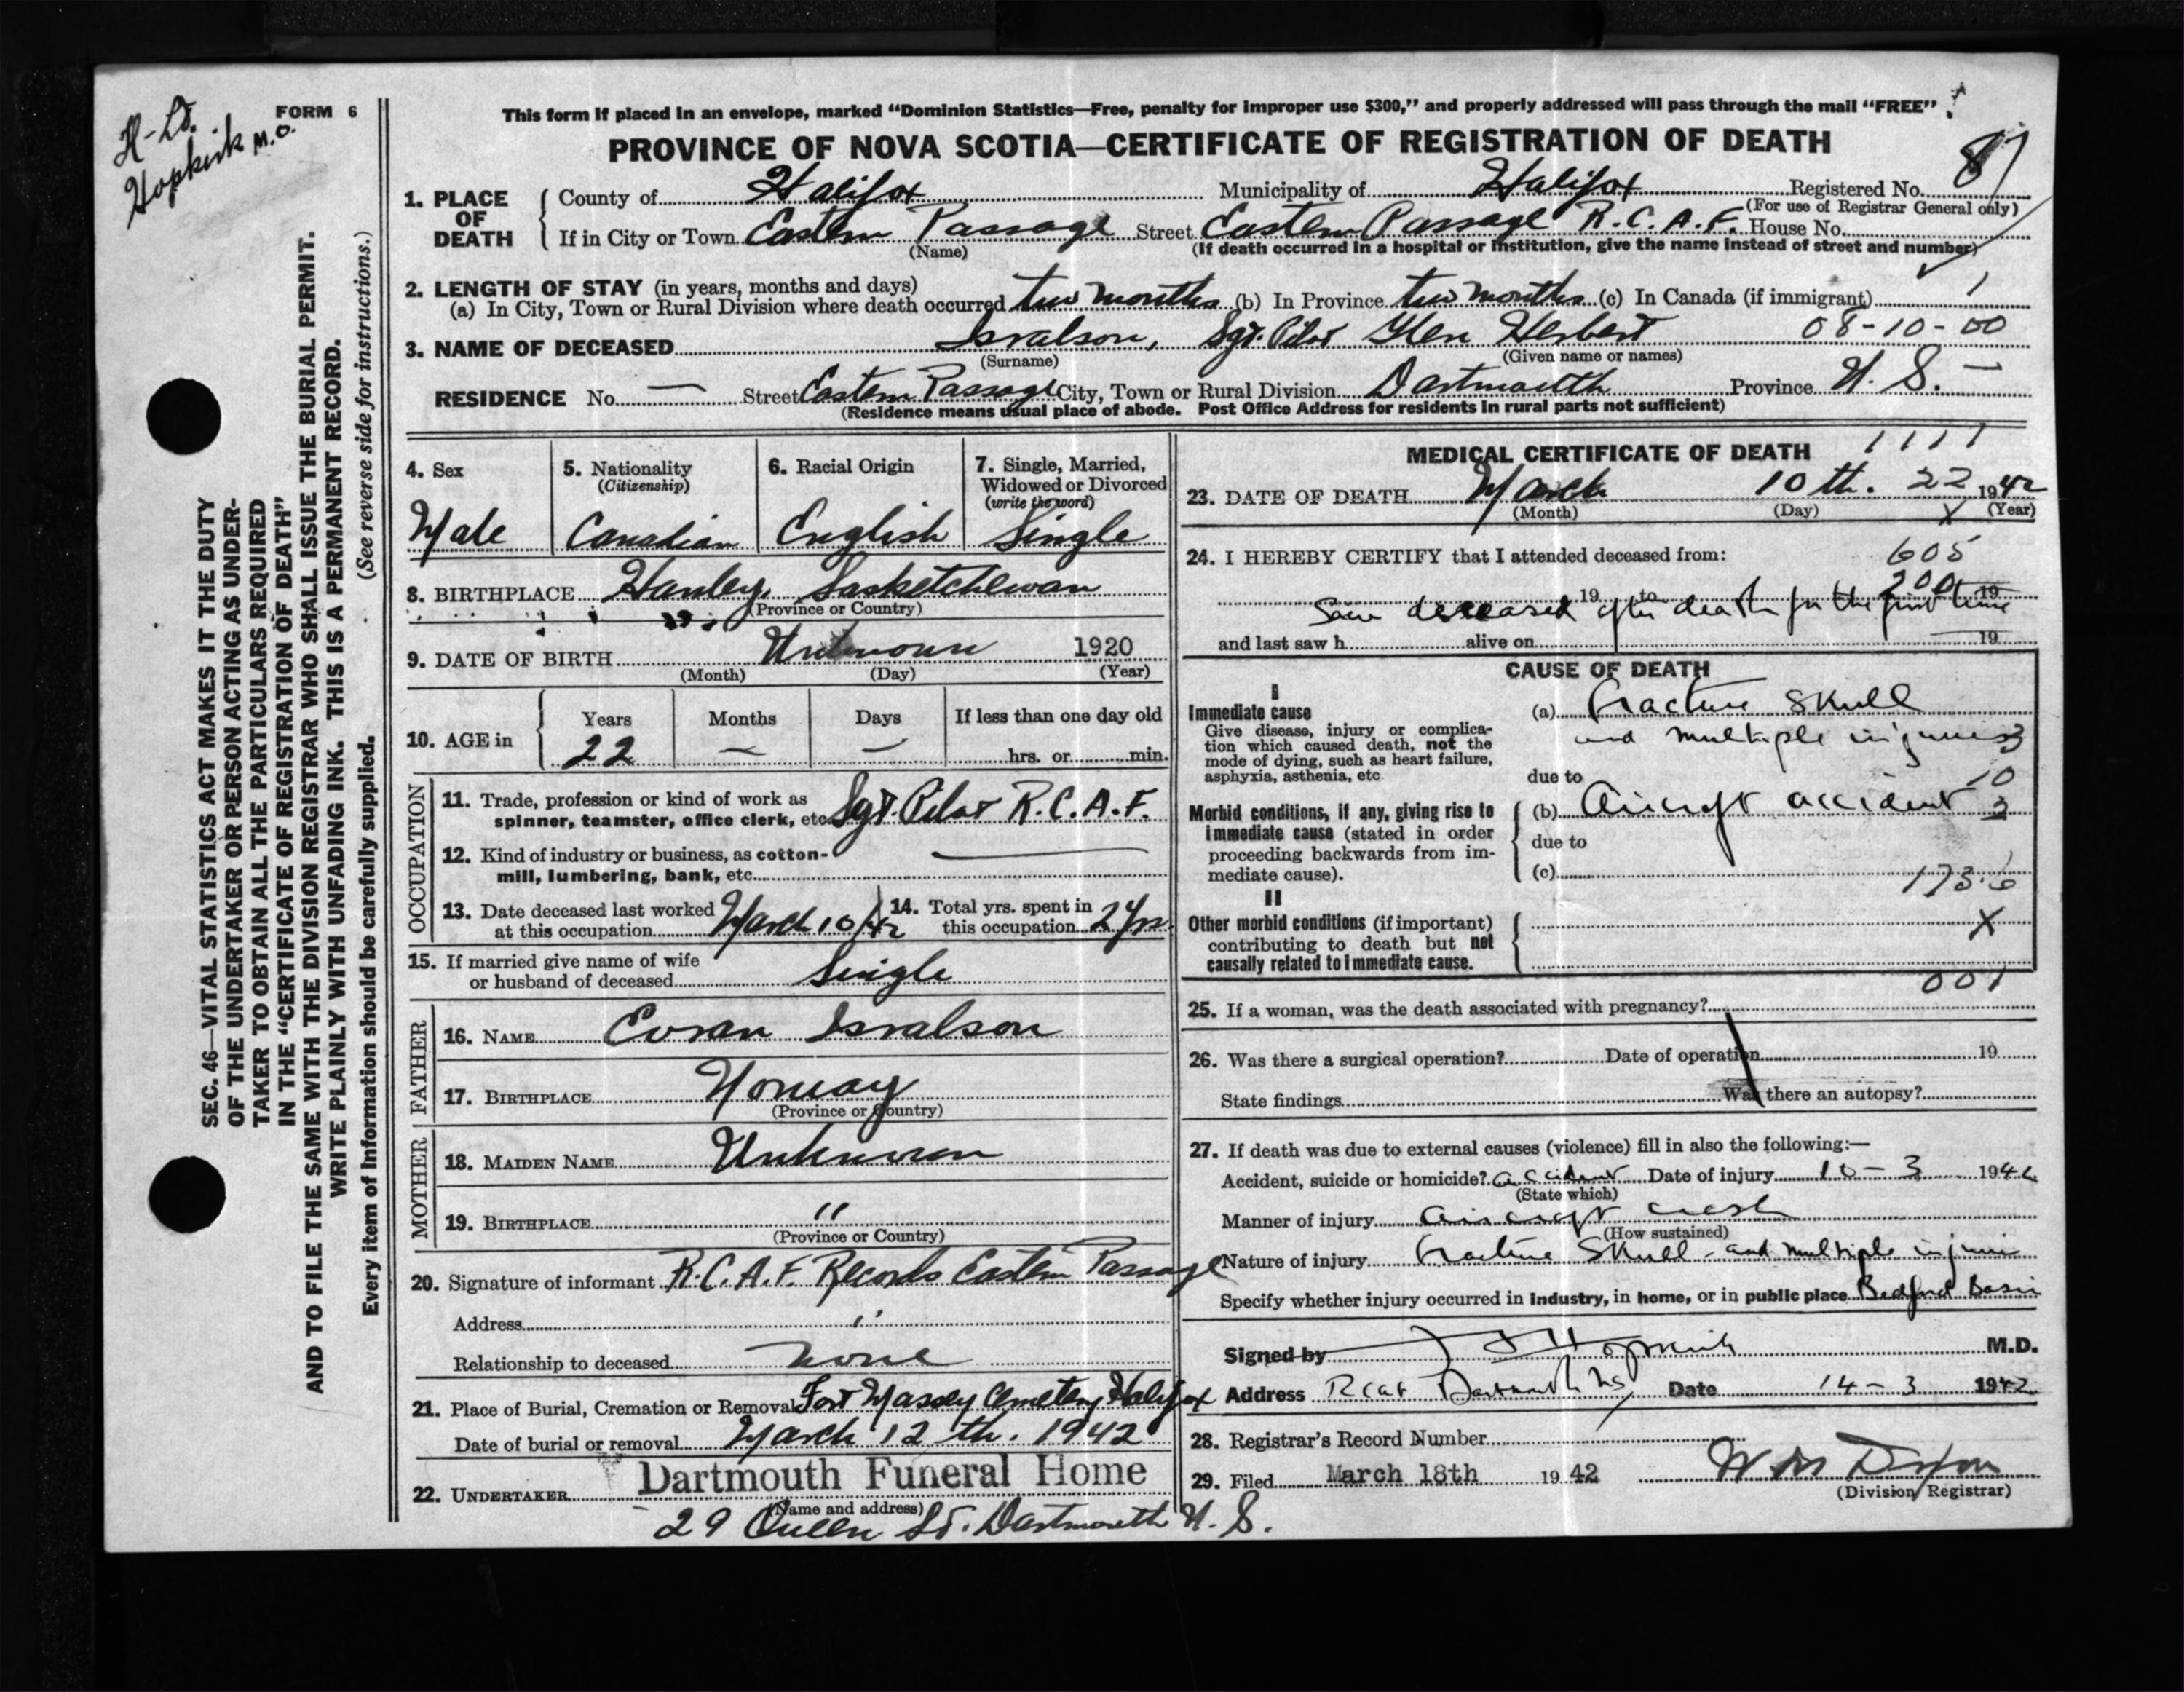 H-Lt.
Hopkirk M.O.
FORM 6
SEC. 46—VITAL STATISTICS ACT MAKES IT THE DUTY
OF THE UNDERTAKER OR PERSON ACTING AS UNDER-
TAKER TO OBTAIN ALL THE PARTICULARS REQUIRED
IN THE "CERTIFICATE OF REGISTRATION OF DEATH"
AND TO FILE THE SAME WITH THE DIVISION REGISTRAR WHO SHALL ISSUE THE BURIAL PERMIT.
WRITE PLAINLY WITH UNFADING INK. THIS IS A PERMANENT RECORD.
Every item of information should be carefully supplied. (See reverse side for instructions.)
This form if placed in an envelope, marked "Dominion Statistics—Free, penalty for improper use $300," and properly addressed will pass through the mail "FREE"
PROVINCE OF NOVA SCOTIA—CERTIFICATE OF REGISTRATION OF DEATH
1. PLACE OF DEATH County of Halifax Municipality of Halifax Registered No. 87
(For use of Registrar General only)
If in City or Town Eastern Passage Street Eastern Passage R.C.A.F. House No.
(Name) (If death occurred in a hospital or institution, give the name instead of street and number)
2. LENGTH OF STAY (in years, months and days)
(a) In City, Town or Rural Division where death occurred two months (b) In Province two months (c) In Canada (if immigrant) 1
3. NAME OF DECEASED Isralson, Sgt. Pilot Glen Herbert 08-10-00
(Surname) (Given name or names)
RESIDENCE No. — Street Eastern Passage City, Town or Rural Division Dartmouth Province N. S. —
(Residence means usual place of abode. Post Office Address for residents in rural parts not sufficient)
4. Sex 5. Nationality 6. Racial Origin 7. Single, Married,
(Citizenship) Widowed or Divorced
(write the word)
Male Canadian English Single
8. BIRTHPLACE Hanley, Sasketchewan
(Province or Country)
9. DATE OF BIRTH Unknown 1920
(Month) (Day) (Year)
10. AGE in Years Months Days If less than one day old
22 — — hrs. or min.
OCCUPATION
11. Trade, profession or kind of work as
spinner, teamster, office clerk, etc. Sgt. Pilot R.C.A.F.
12. Kind of industry or business, as cotton-
mill, lumbering, bank, etc.
13. Date deceased last worked 14. Total yrs. spent in
at this occupation March 10/42 this occupation 2 yrs
15. If married give name of wife
or husband of deceased Single
FATHER
16. NAME Evran Isralson
17. BIRTHPLACE Norway
(Province or Country)
MOTHER
18. MAIDEN NAME Unknown
19. BIRTHPLACE "
(Province or Country)
20. Signature of informant R.C.A.F. Records Eastern Passage
Address "
Relationship to deceased none
21. Place of Burial, Cremation or Removal Fort Massey Cemetery Halifax
Date of burial or removal March 12th. 1942
22. UNDERTAKER Dartmouth Funeral Home
(Name and address)
29 Queen St. Dartmouth N. S.
MEDICAL CERTIFICATE OF DEATH 1111
23. DATE OF DEATH March 10th. 22 1942
(Month) (Day) X (Year)
24. I HEREBY CERTIFY that I attended deceased from: 605
19 to 200 19
Saw deceased after death for the first time
and last saw h alive on 19
CAUSE OF DEATH
I
Immediate cause (a) Fracture Skull
Give disease, injury or complica-
tion which caused death, not the and multiple injuries 3
mode of dying, such as heart failure,
asphyxia, asthenia, etc. due to 10
Morbid conditions, if any, giving rise to (b) Aircraft accident 3
immediate cause (stated in order
proceeding backwards from im- due to
mediate cause). (c) 173.6
II
Other morbid conditions (if important) X
contributing to death but not
causally related to immediate cause.
001
25. If a woman, was the death associated with pregnancy?
26. Was there a surgical operation? Date of operation 19
State findings Was there an autopsy?
27. If death was due to external causes (violence) fill in also the following:—
Accident, suicide or homicide? accident Date of injury 10 - 3 1942
(State which)
Manner of injury Aircraft crash
(How sustained)
Nature of injury Fracture Skull - and multiple injuries
Specify whether injury occurred in industry, in home, or in public place Bedford Basin
Signed by Hopkirk M.D.
Address RCAF Dartmouth NS Date 14-3 1942
28. Registrar's Record Number
29. Filed March 18th 1942 W M Dixon
(Division Registrar)